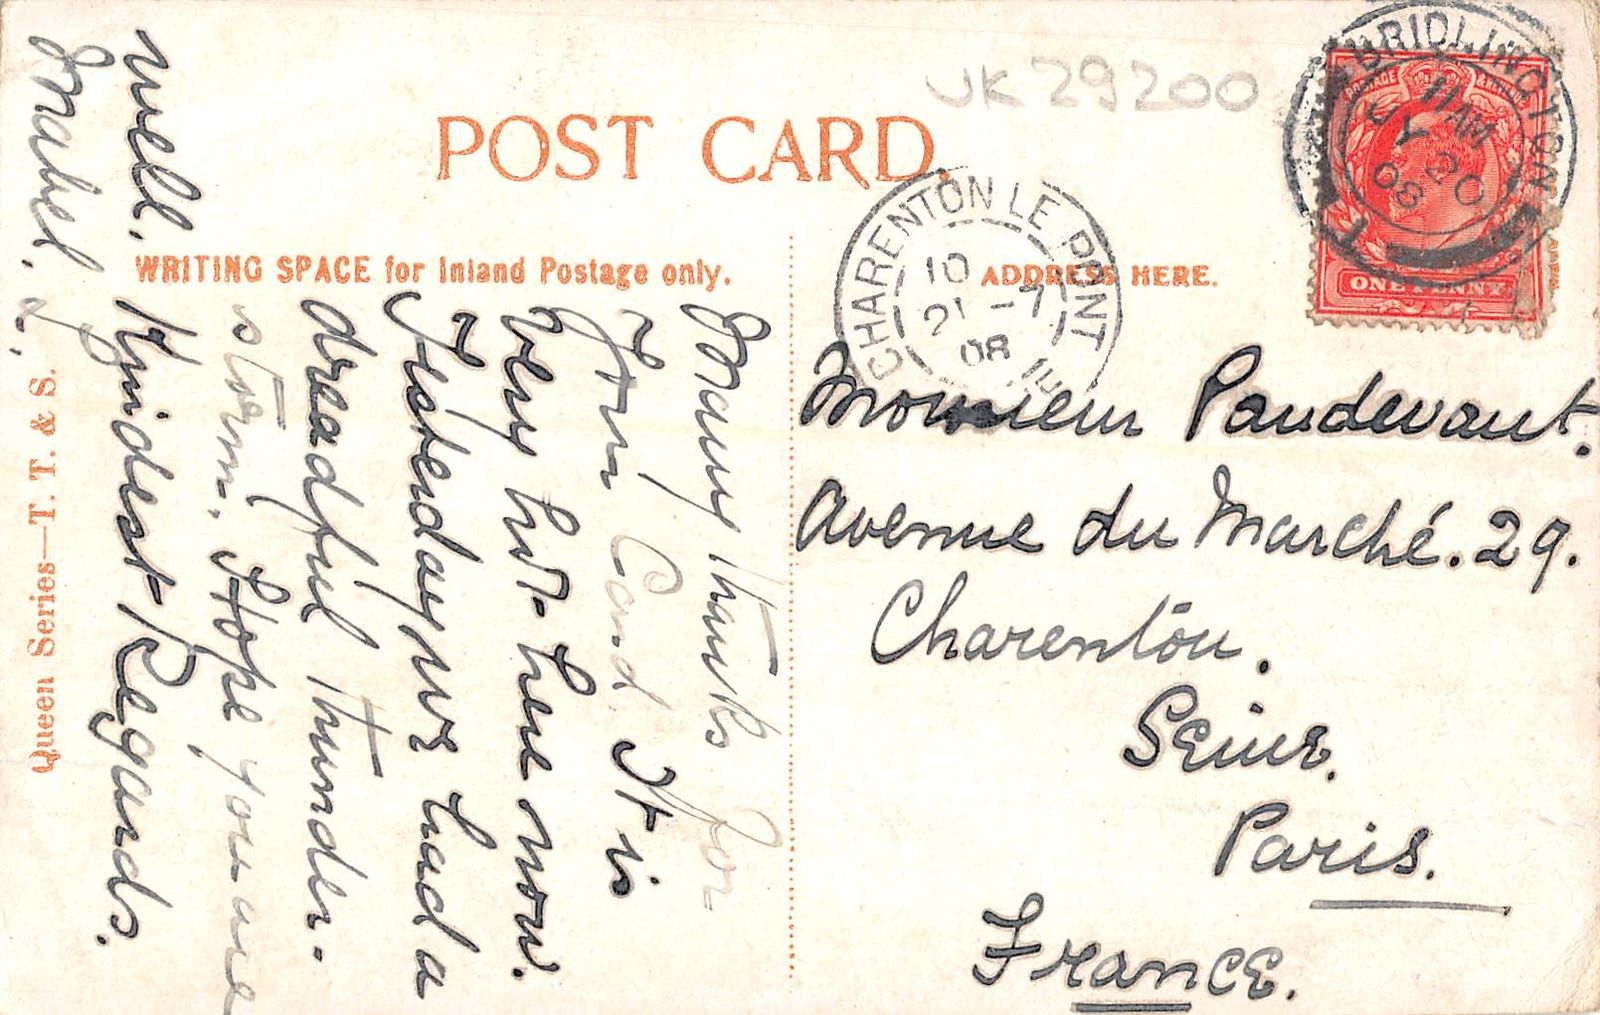 UK 29200
POST CARD.
WRITING SPACE for Inland Postage only.
ADDRESS HERE.
BRIDLINGTON
11 AM
JY 20
08
POSTAGE & REVENUE
ONE PENNY
CHARENTON LE PONT
10
21 - 7
08
Many thanks for
Your Card. It is
Very hot here now.
Yesterday we had a
dreadful thunder-
storm. Hope you are
well. Kindest Regards.
Mabel.
Monsieur Paudevant.
Avenue du Marché. 29.
Charenton.
Seine.
Paris.
France.
Queen Series—T. T. & S.